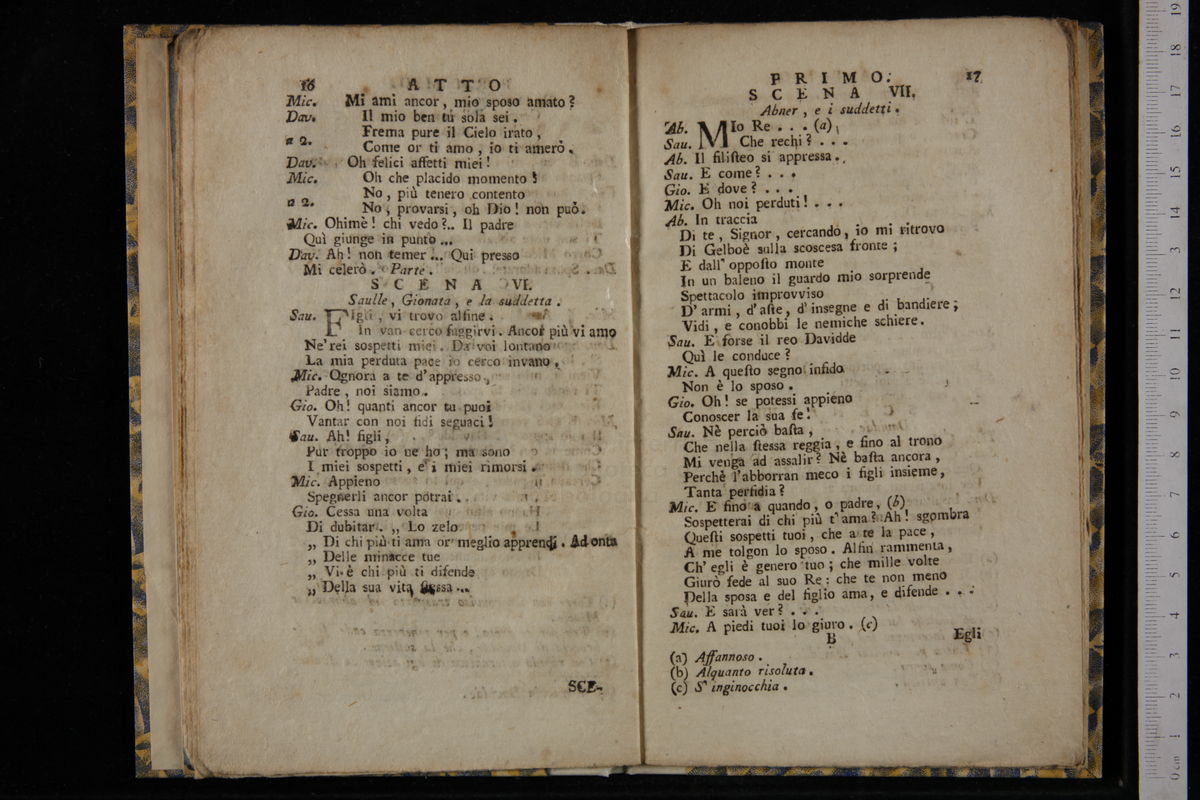 16 ATTO
Mic. Mi ami ancor, mio sposo amato?
Dav. Il mio ben tu sola sei.
a 2. Frema pure il Cielo irato,
Come or ti amo, io ti amerò.
Dav. Oh felici affetti miei!
Mic. Oh che placido momento!
a 2. No, più tenero contento
No, provarsi, oh Dio! non può.
Mic. Ohimè! chi vedo?.. Il padre
Quì giunge in punto...
Dav. Ah! non temer... Qui presso
Mi celerò. Parte.
SCENA VI.
Saulle, Gionata, e la suddetta.
Sau. Figli, vi trovo alfine.
In van cerco fuggirvi. Ancor più vi amo
Ne'rei sospetti miei. Da voi lontano
La mia perduta pace io cerco invano.
Mic. Ognora a te d'appresso,
Padre, noi siamo.
Gio. Oh! quanti ancor tu puoi
Vantar con noi fidi seguaci!
Sau. Ah! figli,
Pur troppo io ne ho; ma sono
I miei sospetti, e i miei rimorsi.
Mic. Appieno
Spegnerli ancor potrai.
Gio. Cessa una volta
Di dubitar. „ Lo zelo
„ Di chi più ti ama or meglio apprendi. Ad onta
„ Delle minacce tue
„ Vi è chi più ti difende
„ Della sua vita stessa...
SCE-
PRIMO. 17
SCENA VII.
Abner, e i suddetti.
Ab. MIo Re... (a)
Sau. Che rechi?...
Ab. Il filiſteo si appressa.
Sau. E come?...
Gio. E dove?...
Mic. Oh noi perduti!...
Ab. In traccia
Di te, Signor, cercando, io mi ritrovo
Di Gelboè sulla scoscesa fronte;
E dall' oppoſto monte
In un baleno il guardo mio sorprende
Spettacolo improvviso
D' armi, d' aſte, d' insegne e di bandiere;
Vidi, e conobbi le nemiche schiere.
Sau. E forse il reo Davidde
Quì le conduce?
Mic. A queſto segno infido
Non è lo sposo.
Gio. Oh! se potessi appieno
Conoscer la sua fe!
Sau. Nè perciò baſta,
Che nella ſtessa reggia, e fino al trono
Mi venga ad assalir? Nè baſta ancora,
Perchè l'abborran meco i figli insieme,
Tanta perfidia?
Mic. E fino a quando, o padre, (b)
Sospetterai di chi più t' ama? Ah! sgombra
Queſti sospetti tuoi, che a te la pace,
A me tolgon lo sposo. Alfin rammenta,
Ch' egli è genero tuo; che mille volte
Giurò fede al suo Re: che te non meno
Della sposa e del figlio ama, e difende...
Sau. E sarà ver?...
Mic. A piedi tuoi lo giuro. (c)
B Egli
(a) Affannoso.
(b) Alquanto risoluta.
(c) S' inginocchia.